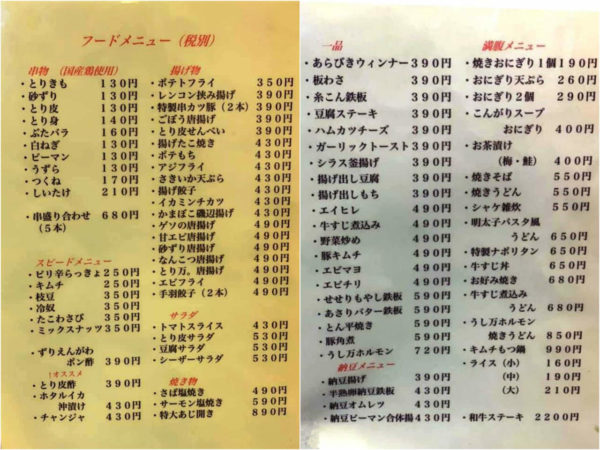 フードメニュー（税別）
串物 （国産鶏使用）
・とりきも 130円
・砂ずり 130円
・とり皮 130円
・とり身 140円
・ぶたバラ 160円
・白ねぎ 130円
・ピーマン 130円
・うずら 130円
・つくね 170円
・しいたけ 210円
・串盛り合わせ 680円
（５本）
スピードメニュー
・ピリ辛らっきょ 250円
・キムチ 250円
・枝豆 350円
・冷奴 350円
・たこわさび 350円
・ミックスナッツ 350円
・ずりえんがわ
ポン酢 390円
！オススメ
・とり皮酢 390円
・ホタルイカ
沖漬け 430円
・チャンジャ 430円
揚げ物
・ポテトフライ 350円
・レンコン挟み揚げ 390円
・特製串カツ豚（２本）390円
・ごぼう唐揚げ 390円
・とり皮せんべい 390円
・揚げたこ焼き 430円
・ポテもち 430円
・アジフライ 430円
・さきいか天ぷら 430円
・揚げ餃子 430円
・イカミンチカツ 430円
・かまぼこ磯辺揚げ 430円
・ゲソの唐揚げ 490円
・甘エビ唐揚げ 490円
・砂ずり唐揚げ 490円
・なんこつ唐揚げ 490円
・とり万。唐揚げ 490円
・エビフライ 490円
・手羽餃子（２本）490円
サラダ
・トマトスライス 430円
・とり皮サラダ 530円
・豆腐サラダ 530円
・シーザーサラダ 530円
焼き物
・さば塩焼き 490円
・サーモン塩焼き 590円
・特大あじ開き 890円
一品
・あらびきウィンナー 390円
・板わさ 390円
・糸こん鉄板 390円
・豆腐ステーキ 390円
・ハムカツチーズ 390円
・ガーリックトースト 390円
・シラス釜揚げ 390円
・揚げ出し豆腐 390円
・揚げ出しもち 390円
・エイヒレ 490円
・牛すじ煮込み 490円
・野菜炒め 490円
・豚キムチ 490円
・エビマヨ 490円
・エビチリ 490円
・せせりもやし鉄板 590円
・あさりバター鉄板 590円
・とん平焼き 590円
・豚角煮 590円
・うし万ホルモン 720円
納豆メニュー
・納豆揚げ 390円
・半熟卵納豆鉄板 430円
・納豆オムレツ 430円
・納豆ピーマン合体揚 430円
満腹メニュー
・焼きおにぎり１個 190円
・おにぎり天ぷら 260円
・おにぎり２個 290円
・こんがりスープ
おにぎり 400円
・お茶漬け
（梅・鮭） 400円
・焼きそば 550円
・焼きうどん 550円
・シャケ雑炊 550円
・明太子パスタ風
うどん 650円
・特製ナポリタン 650円
・牛すじ丼 650円
・お好み焼き 680円
・牛すじ煮込み
うどん 680円
・うし万ホルモン
焼きうどん 850円
・キムチもつ鍋 990円
・ライス（小） 160円
（中） 190円
（大） 210円
・和牛ステーキ 2200円